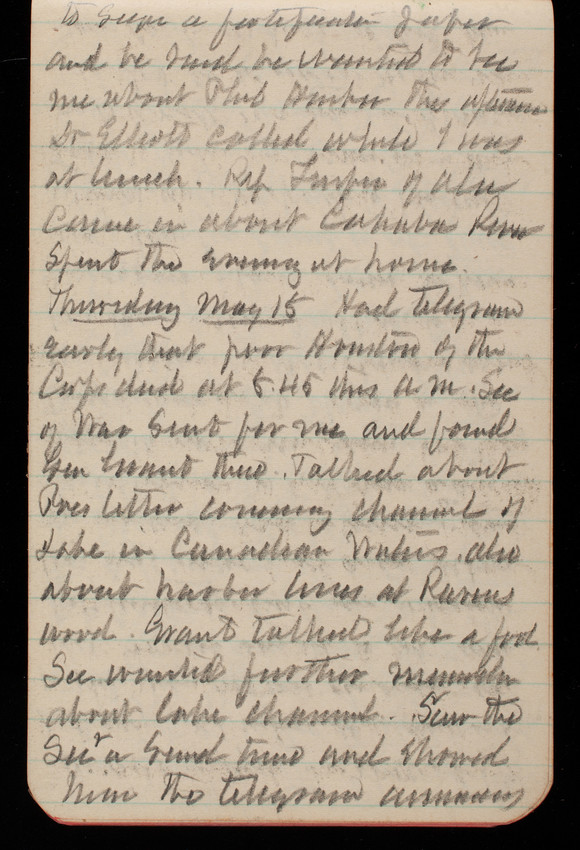 to sign a fortification paper
and he said he wanted to see
me about Phil Harbor this afternoon
Dr Elliott called while I was
at lunch. Rep Turpin of Ala
came in about Cahaba River
Spent the evening at home.
Thursday May 15 Had telegram
early that poor Houston of the
Corps died at 5.45 this a.m. Sec
of War sent for me and found
Gen Grant there. Talked about
Pres letter concerning channel of
Lake in Canadian Waters. also
about harbor lines at Ravens
wood. Grant talked like a fool
Sec wanted further memoranda
about lake channel. Saw the
Secy a second time and showed
him the telegram announcing